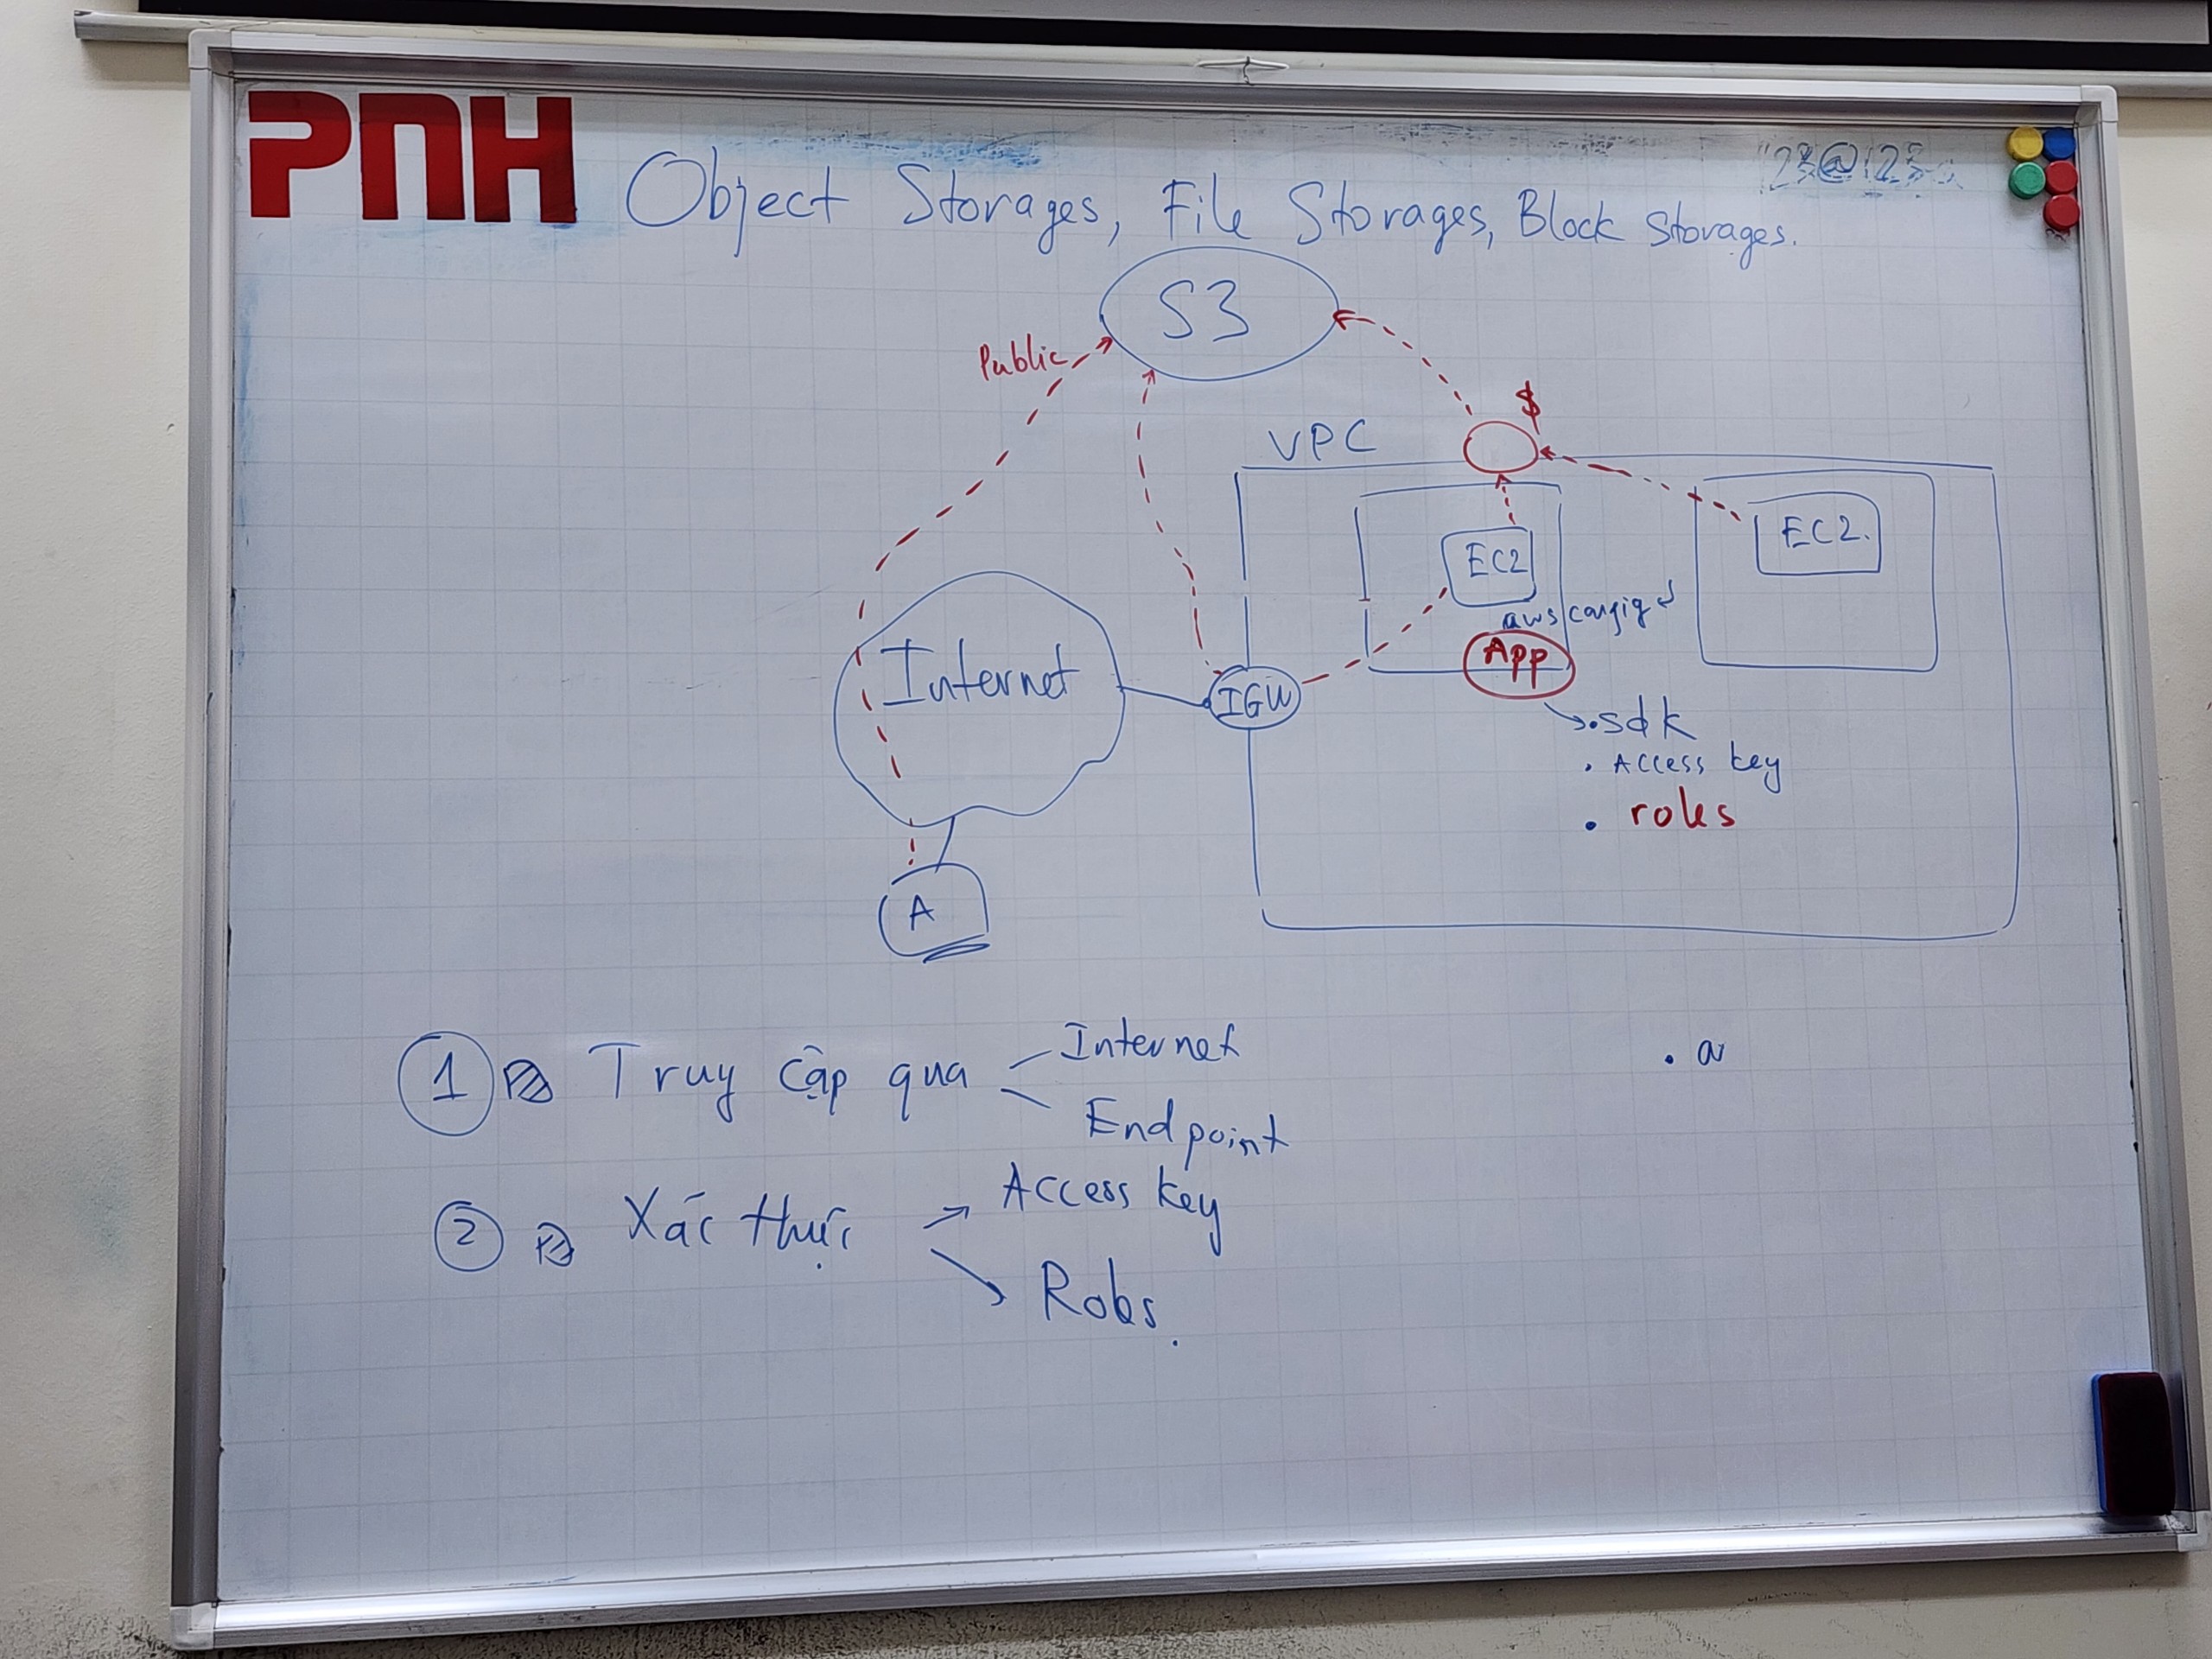 PNH
Object Storages, File Storages, Block Storages.
S3
Public
$
VPC
EC2
EC2.
aws configure
App
Internet
IGW
.sdk
. Access key
. roles
A
1 Truy cập qua Internet
Endpoint
. a
2 Xác thực Access key
Roles.